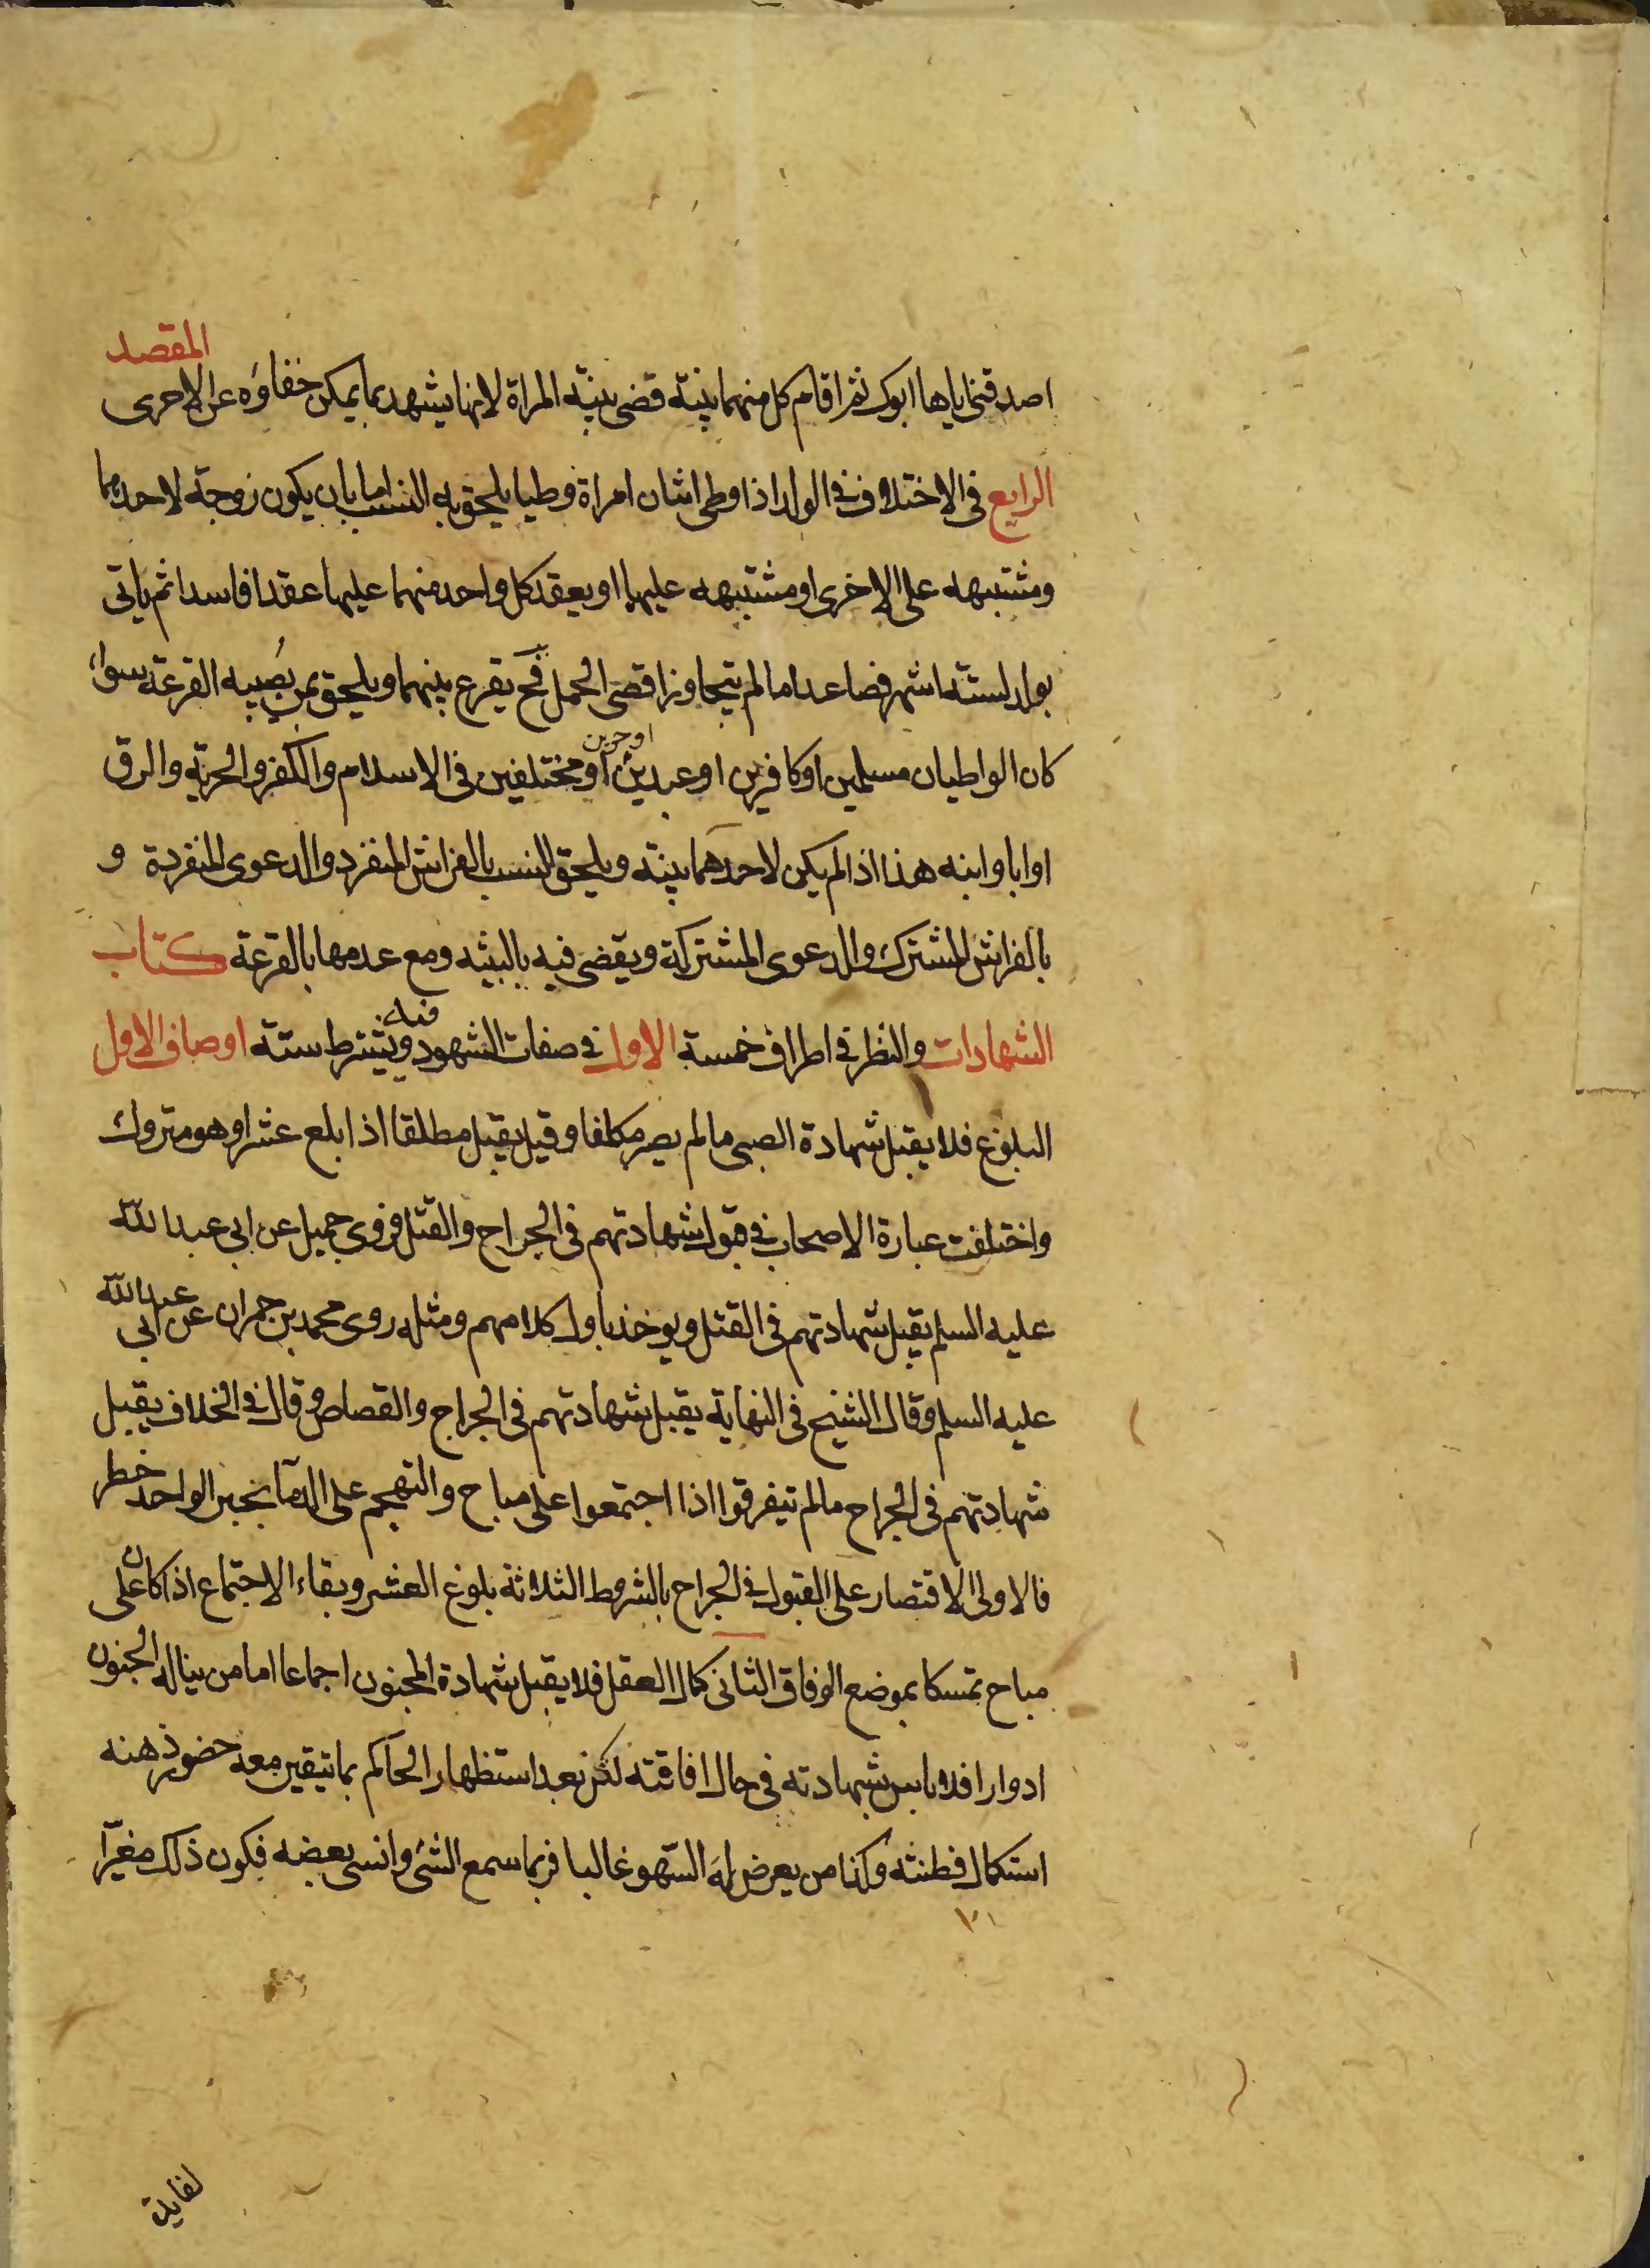 المقصد
اصدقني اياها ابوك ثم اقام كل منهما بينة قضى ببينة المراة لانها يشهد بما يمكن خفاؤه عن الاخرى
الرابع في الاختلاف في الولد اذا وطى اثنان امراة وطيا يلحق به النسب اما بان يكون زوجة لاحدهما
ومشتبهه على الاخرى او مشتبهه عليهما او يعقد كل واحد منهما عليها عقدا فاسدا ثم ياتى
بولد لستة اشهر فصاعدا ما لم يتجاوز اقصى الحمل فح يقرع بينهما ويلحق بمن يصيبه القرعة سواء
كان الواطيان مسلمين او كافرين او عبدين او حرين او مختلفين في الاسلام والكفر والحرية والرق
او ابا وابنه هذا اذا لم يكن لاحدهما بينة ويلحق النسب بالفراش المنفرد والدعوى المنفردة و
بالفراش المشترك والدعوى المشتركة ويقضى فيه بالبينه ومع عدمها بالقرعة كتاب
الشهادات والنظر في اطراف خمسة الاول في صفات الشهود ويشترط فيه ستة اوصاف الاول
البلوغ فلا يقبل شهادة الصبي ما لم يصر مكلفا وقيل يقبل مطلقا اذا بلغ عشرا وهو متروك
واختلفت عبارة الاصحاب في قبول شهادتهم في الجراح والقتل فروى جميل عن ابي عبد الله
عليه السلم يقبل شهادتهم في القتل ويوخذ باول كلامهم ومثله روى محمد بن حمران عن ابي عبد الله
عليه السلم وقال الشيخ في النهاية يقبل شهادتهم في الجراح والقصاص وقال في الخلاف يقبل
شهادتهم في الجراح ما لم يتفرقوا اذا اجتمعوا على مباح والتهجم على الدما بخبر الواحد خطر
فالاولى الاقتصار على القبول في الجراح بالشروط الثلاثة بلوغ العشر وبقاء الاجتماع اذا كان على
مباح تمسكا بموضع الوفاق الثاني كمال العقل فلا يقبل شهادة المجنون اجماعا اما من يناله الجنون
ادوارا فلا باس بشهادته في حال افاقته لكن بعد استظهار الحاكم بما تيقين معه حضور ذهنه
استكمال فطنته وكذا من يعرض له السهو غالبا فربما سمع الشئ وانسى بعضه فيكون ذلك مغيرا
لفايدة